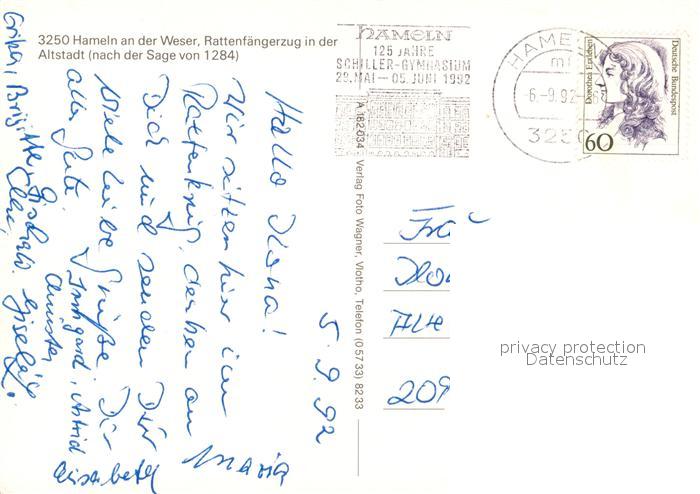 3250 Hameln an der Weser, Rattenfängerzug in der
Altstadt (nach der Sage von 1284)
HAMELN
125 JAHRE
SCHILLER-GYMNASIUM
29. MAI - 05. JUNI 1992
HAMELN
-6.-9.92
325
Deutsche Bundespost
Dorothea Erxleben
60
A 182 034 Verlag Foto Wagner, Vlotho, Telefon (0 57 33) 82 33
5. 9. 92
Hallo Ilona!
Wir sitzen hier im
Rattenkrug, denken an
Dich und senden Dir
viele liebe Grüße Dir
alles Gute.
Maria
Irmgard, Astrid
Elisabeth
Gisela
Erika, Brigitte
Fra
Ilo
Alte
209
privacy protection
Datenschutz